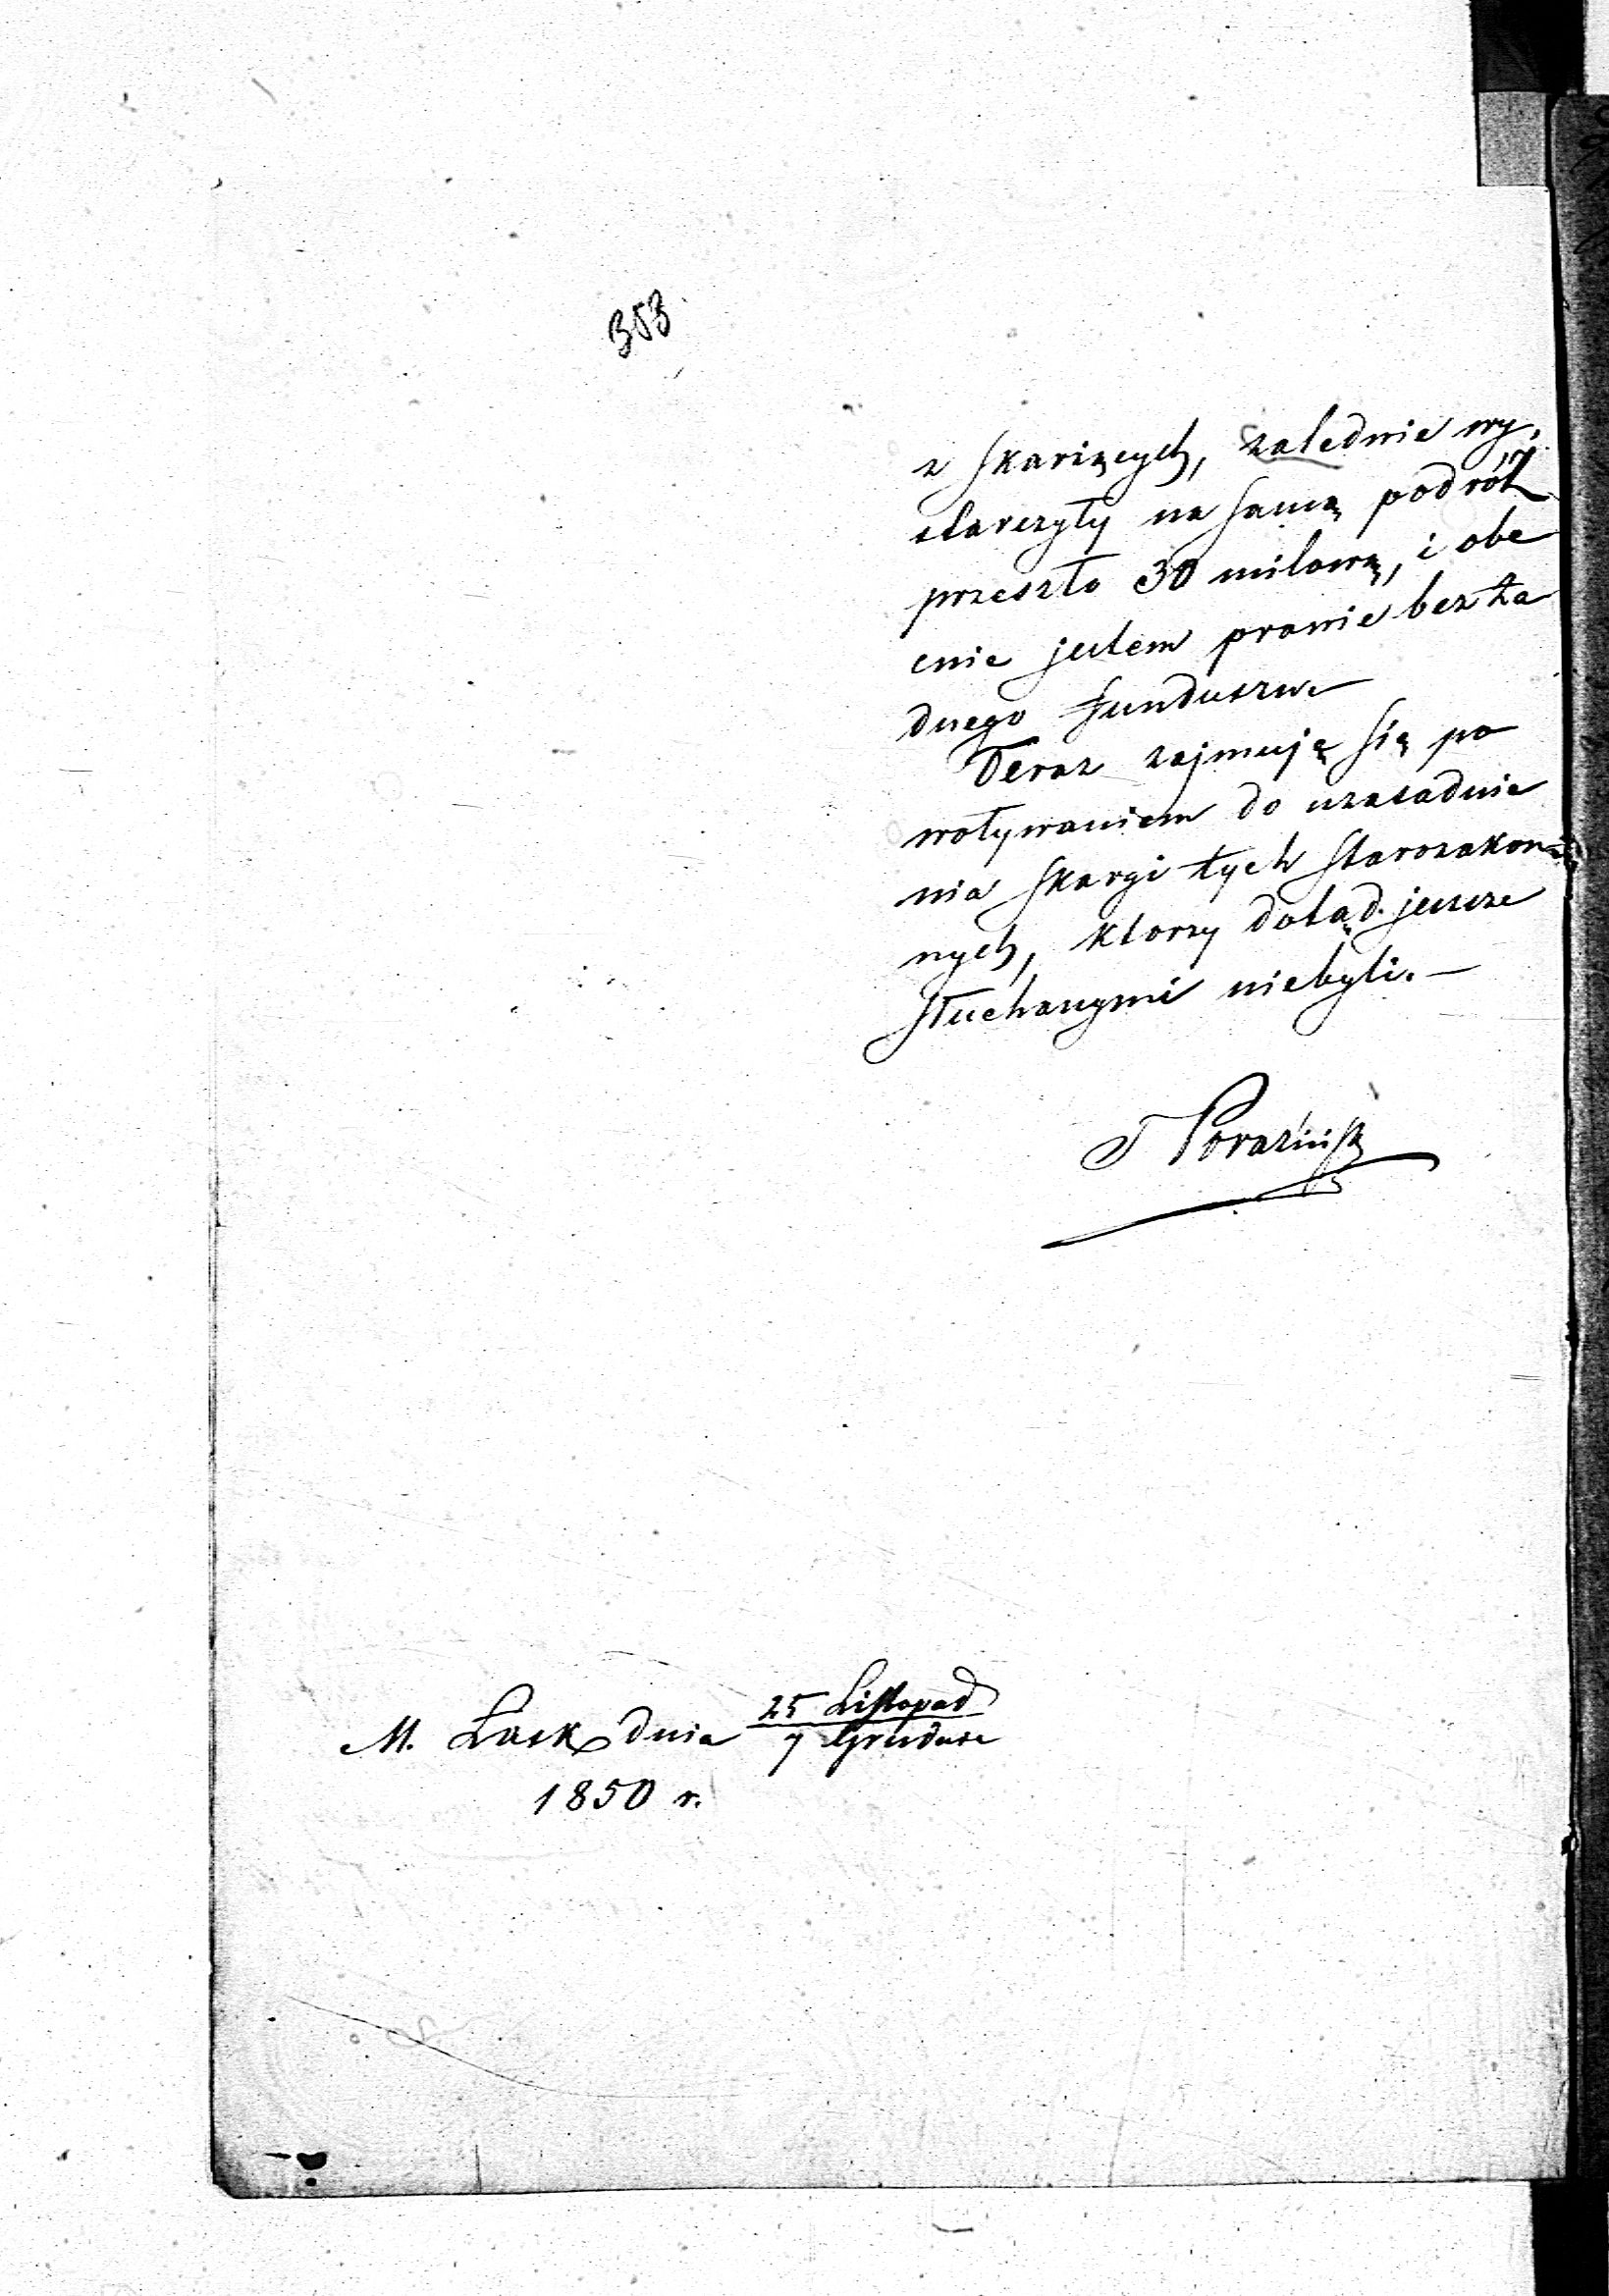 353
z skarżących, zaledwie wy,
starczyły na samą podróż
przeszło 30 milową, i obe
cnie jestem prawie bez ża
dnego funduszu.
Teraz zajmuję się po
woływaniem do uzasadnie
nia skargi tych starozakon=
nych, ktorzy dotąd jeszcze
słuchanymi niebyli. —
T Poraziński
M. Łask dnia 25 Listopad
7 Grudnia
1850 r.